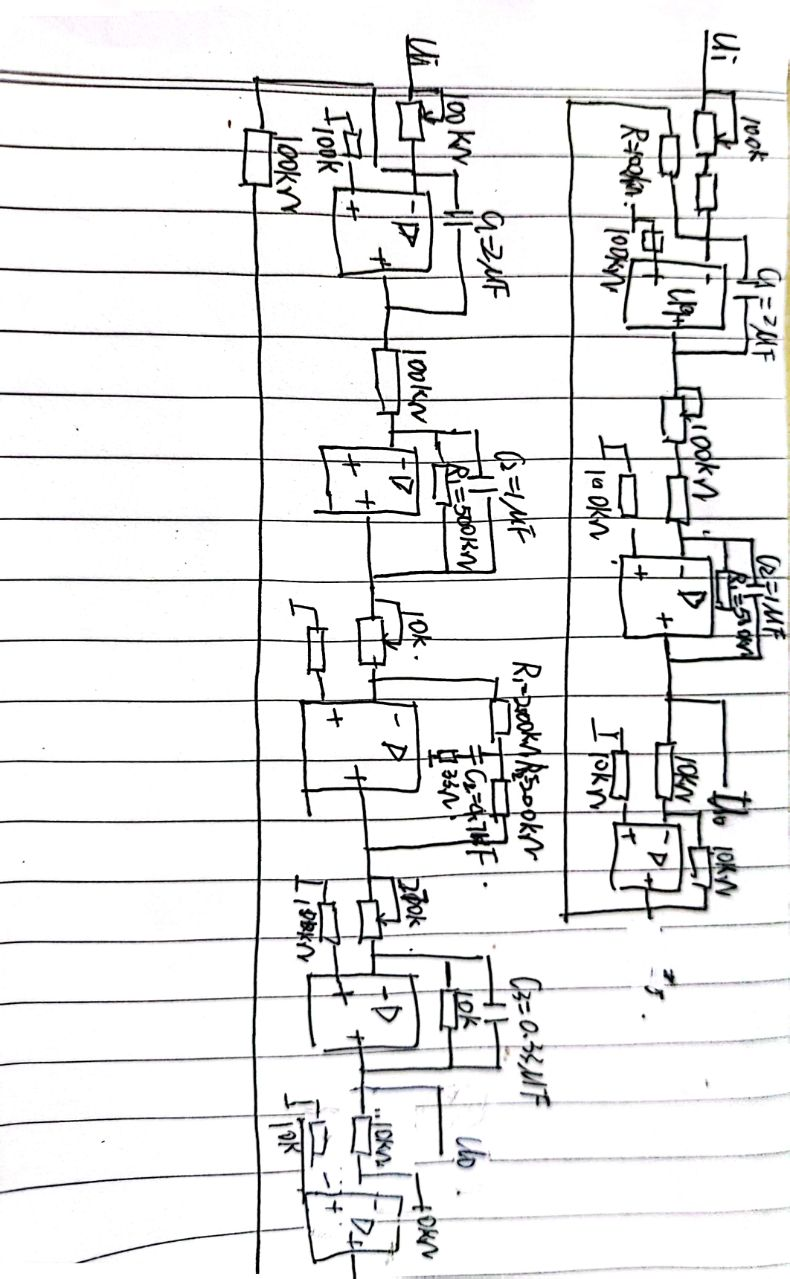 Ui
100k
R=100kΩ
100kΩ
C1=2μF
100kΩ
100kΩ
C2=1μF
R1=500kΩ
10kΩ
10kΩ
U0
10kΩ
Ui
100kΩ
100k
100kΩ
C1=2μF
100kΩ
C2=1μF
R1=500kΩ
10k
R1=200kΩ
R2=500kΩ
C2=4.7μF
200k
100kΩ
C3=0.33μF
10k
U0
10kΩ
10k
10kΩ